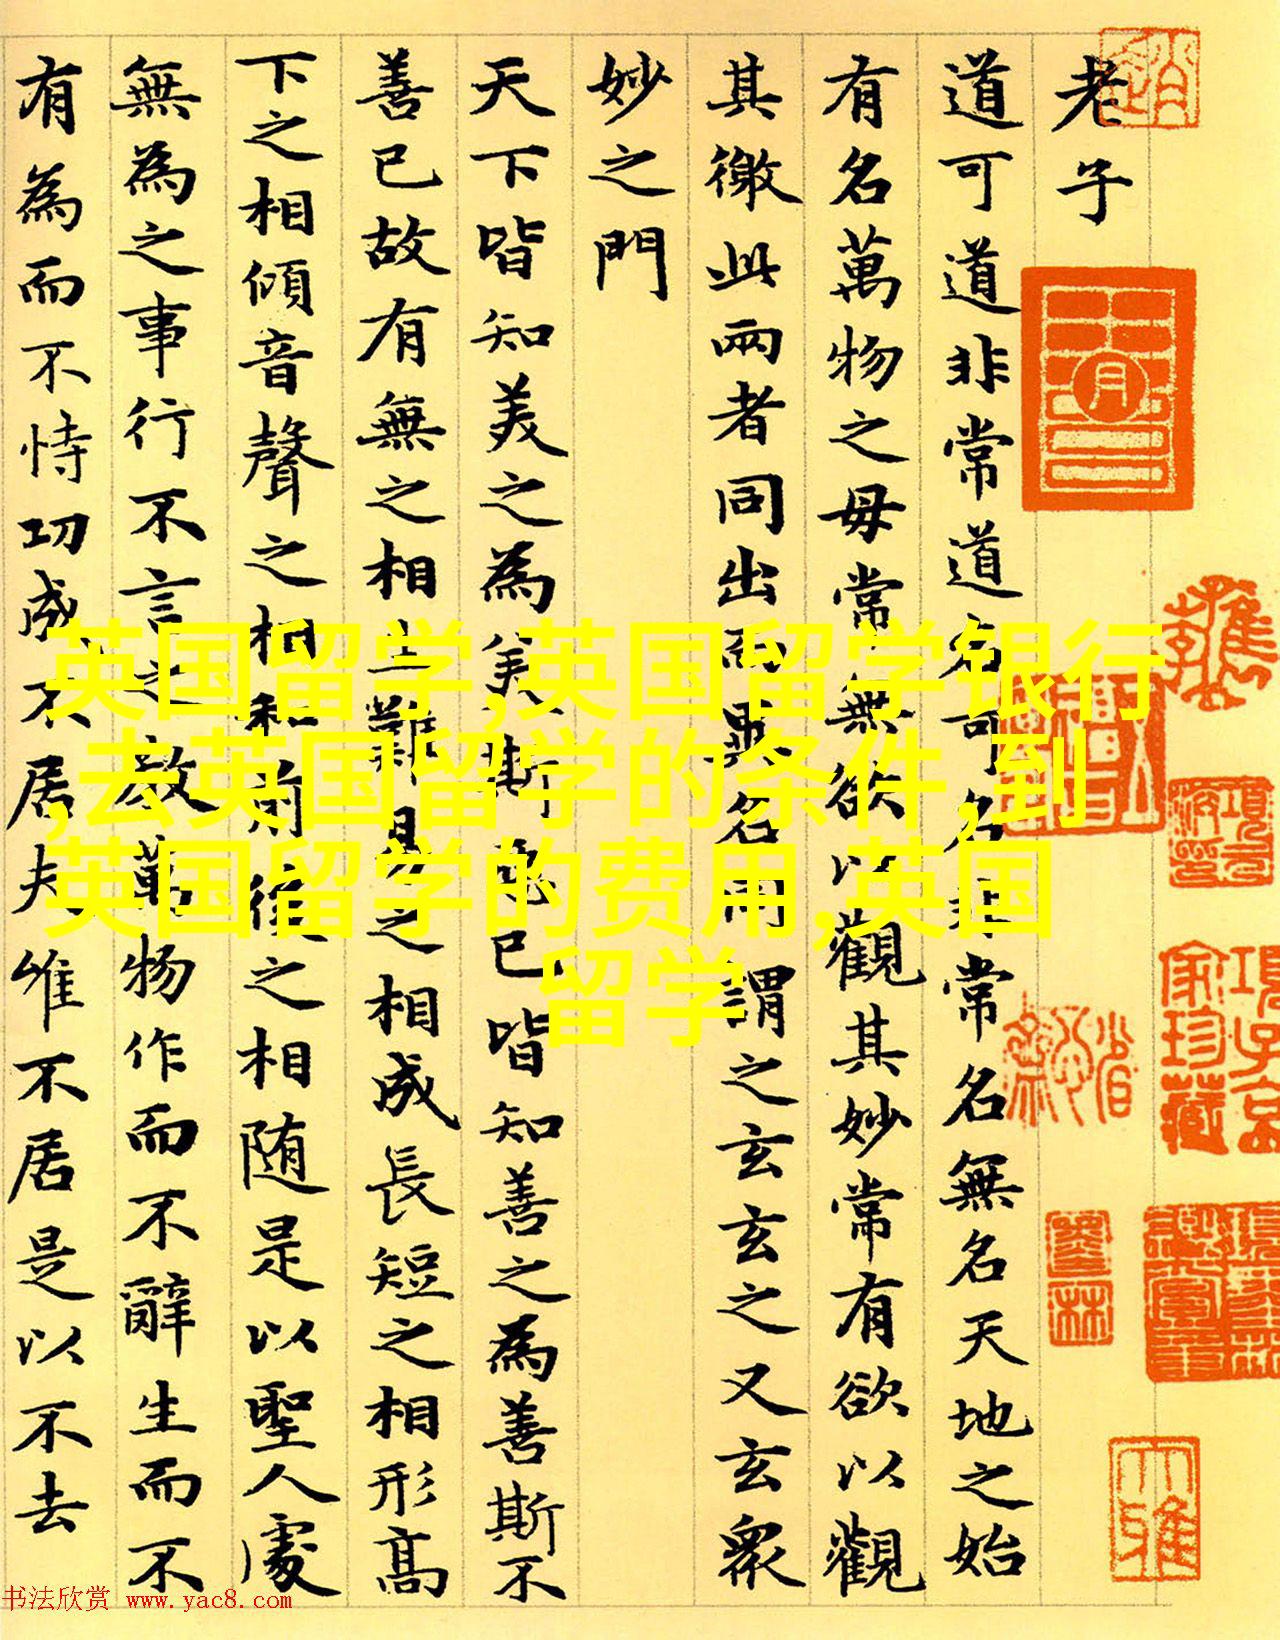 老子
道可道非常道名可名非常名無名天地之始
有名萬物之母常無欲以觀其妙常有欲以觀
其徼此兩者同出而異名同謂之玄玄之又玄衆
妙之門
天下皆知美之為美斯惡已皆知善之為善斯不
善已故有無之相生難易之相成長短之相形髙
下之相傾音聲之相和前後之相随是以聖人處
無為之事行不言之教萬物作而不辭生而不
有為而不恃功成不居夫唯不居是以不去
英国留学,英国留学银行
,去英国留学的条件,到
英国留学的费用,英国
留学
項子京家珍藏
大雅
书法欣赏 www.yac8.com